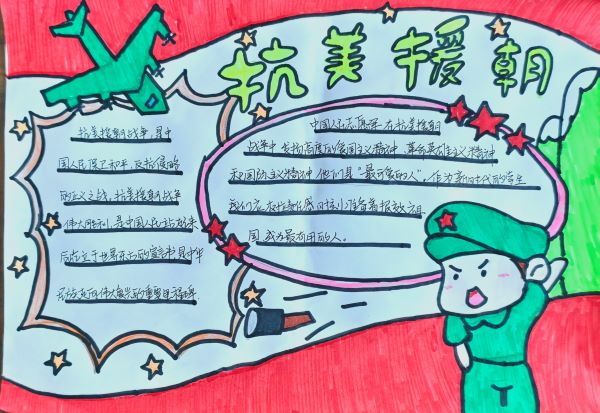 抗美援朝
抗美援朝战争,是中
国人民保卫和平、反抗侵略
的正义之战,抗美援朝战争
伟大胜利,是中国人民站起来
后屹立于世界东方的宣言书,是中华
民族走向伟大复兴的重要里程碑
中国人民志愿军在抗美援朝
战争中发扬高度的爱国主义精神、革命英雄主义精神
和国际主义精神,他们是“最可爱的人”,作为新时代的学生
国,成为最有用的人。